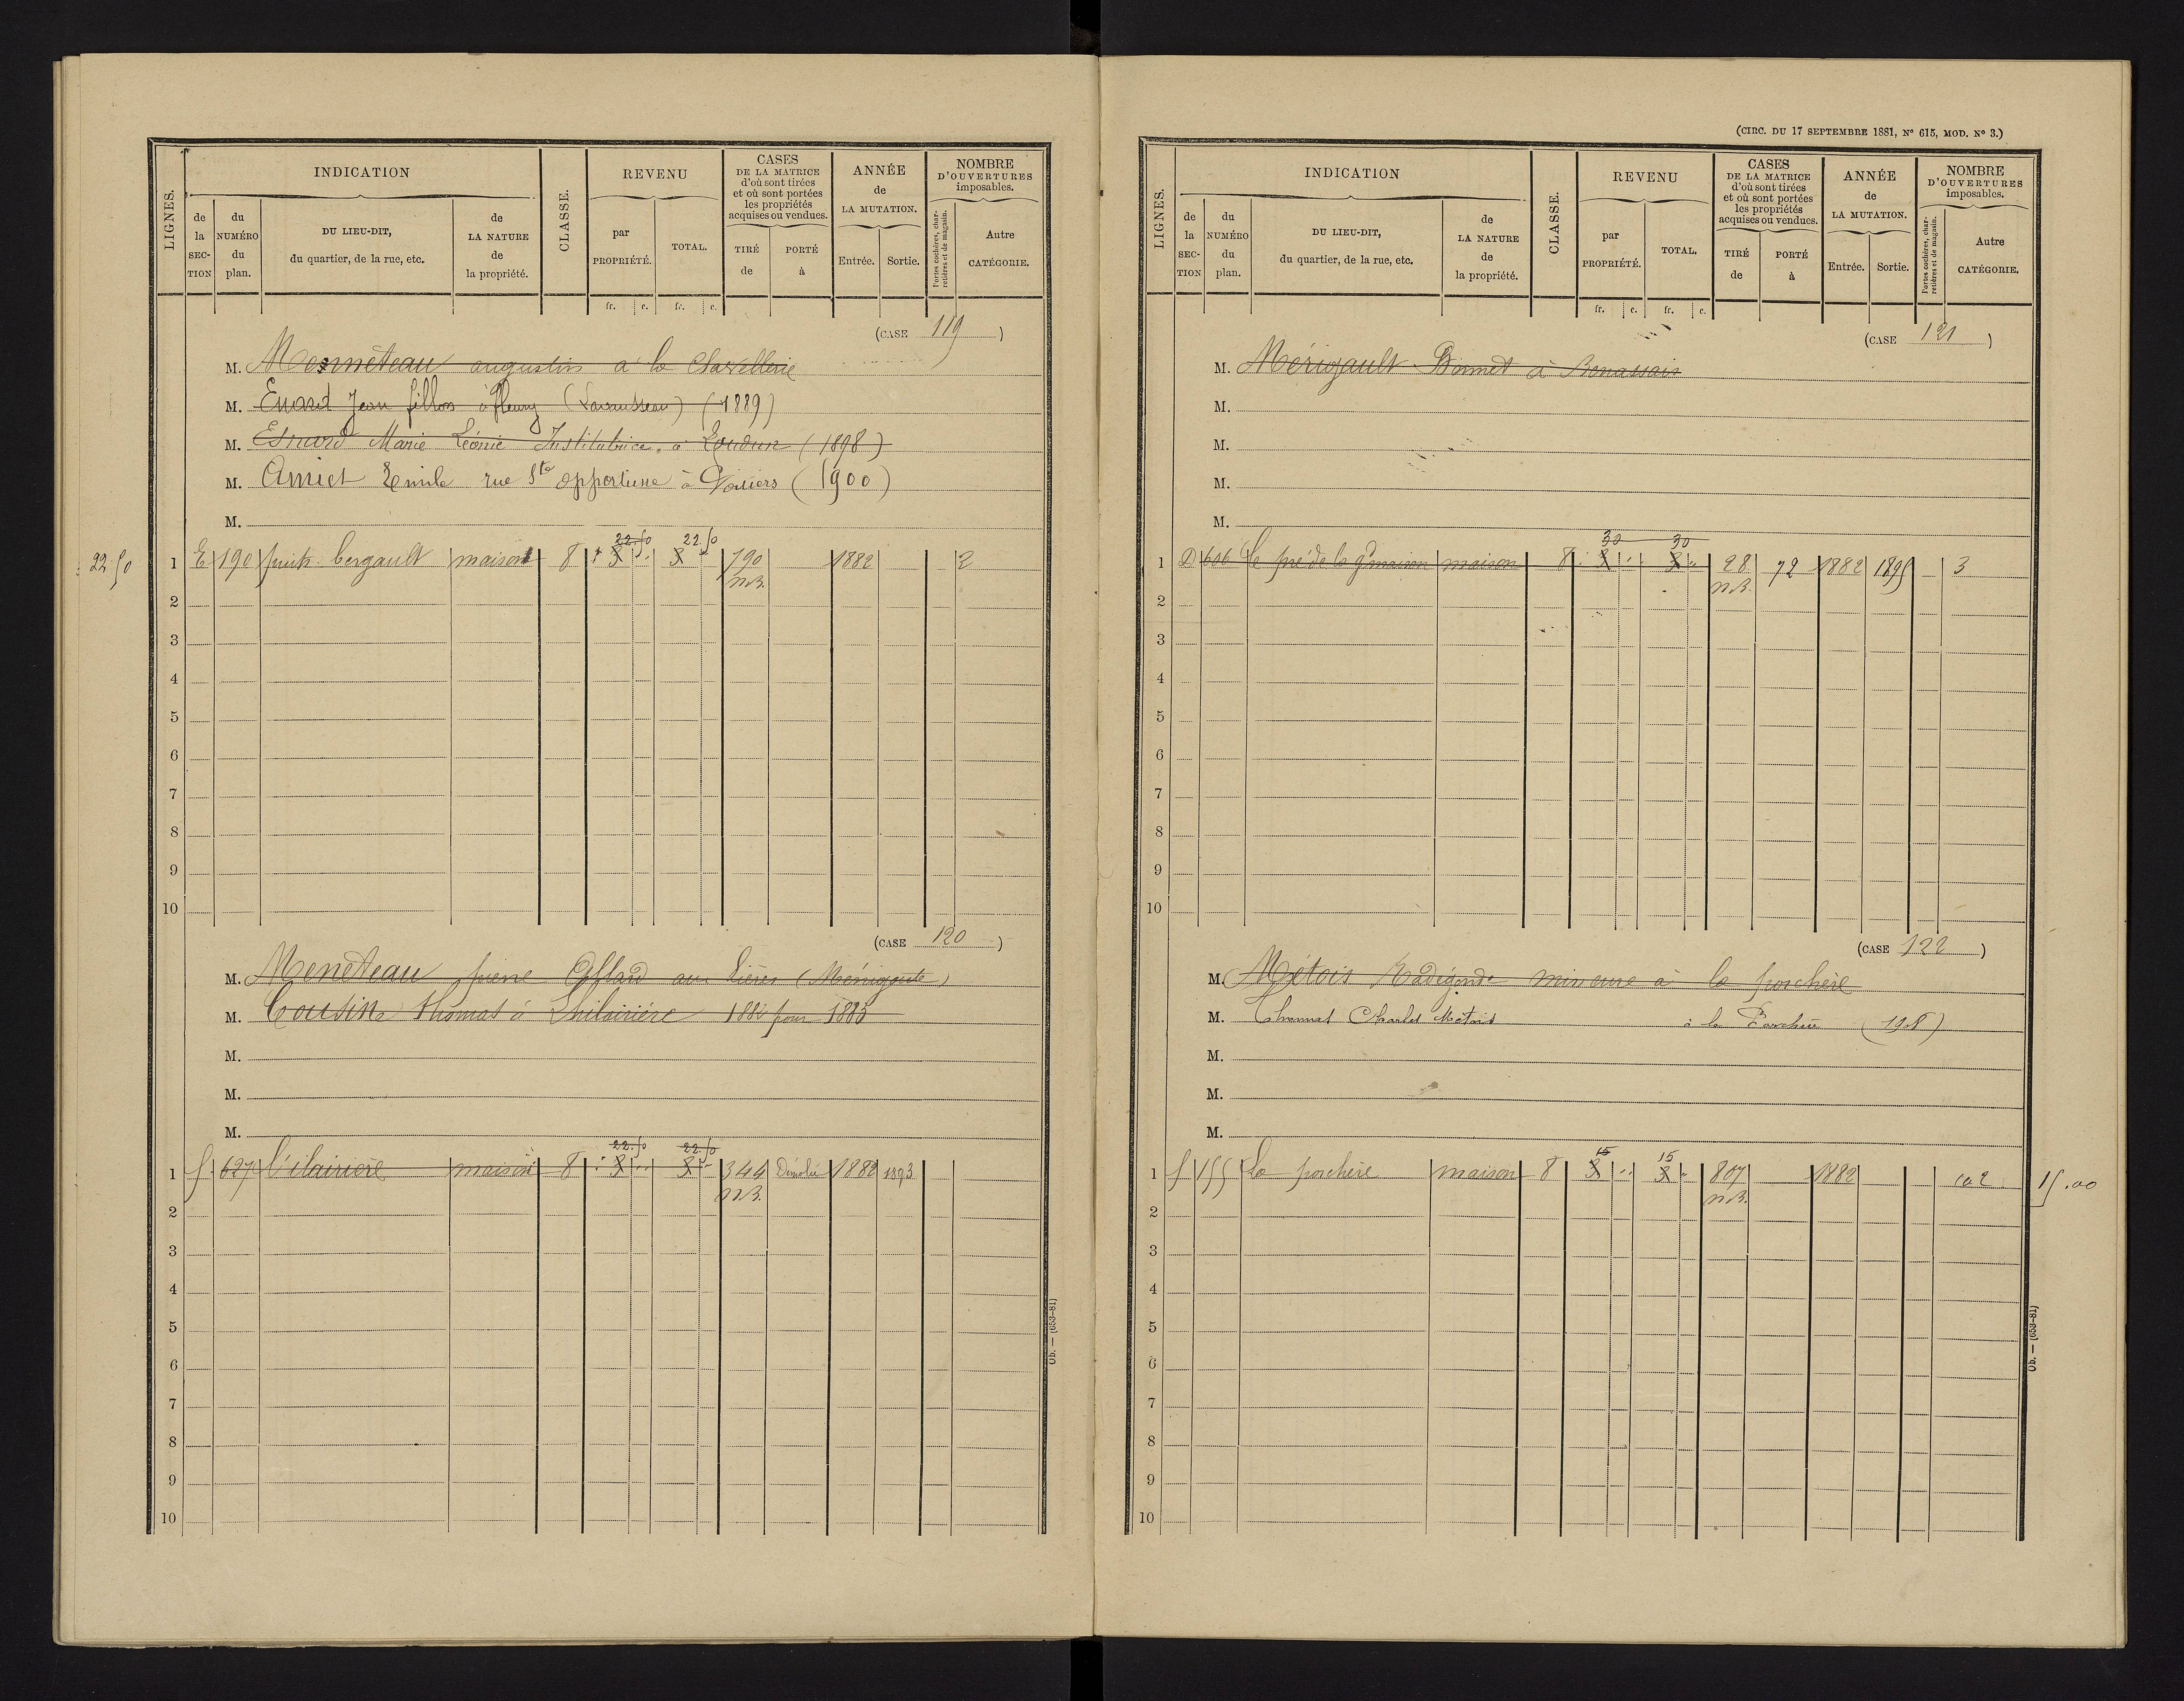 LIGNES.
INDICATION
de la SECTION
du NUMÉRO du plan.
DU LIEU-DIT, du quartier, de la rue, etc.
de LA NATURE de la propriété.
CLASSE.
REVENU
par PROPRIÉTÉ.
TOTAL.
CASES DE LA MATRICE d'où sont tirées et où sont portées les propriétés acquises ou vendues.
TIRÉ de
PORTÉ à
ANNÉE de LA MUTATION.
Entrée.
Sortie.
NOMBRE D'OUVERTURES imposables.
Portes cochères, charretières et de magasin.
Autre CATÉGORIE.
fr. c. fr. c.
(CASE 119)
M. augustin à la
M. Jean fillon à fleury (Lavausseau) (1889)
M. Esnard Marie Léonie Institutrice à Loudun (1898)
M. Amiet Emile rue Ste opportune à Poitiers (1900)
M.
22.50 22.50
22.50 1 E 190 puits bergault maison 8 8 8 790 1882 2
n.B.
2
3
4
5
6
7
8
9
10
(CASE 120)
M. Meneteau pierre aux (Ménigoute)
M. Cousin Thomas à pour 1883
M.
M.
M.
22.50 22.50
1 f 627 l'ilairiere maison 8 8 8 344 Démolie 1882 1893
n.B.
2
3
4
5
6
7
8
9
10
Ob. — (653-81)
(CIRC. DU 17 SEPTEMBRE 1881, No 615, MOD. No 3.)
LIGNES.
INDICATION
de la SECTION
du NUMÉRO du plan.
DU LIEU-DIT, du quartier, de la rue, etc.
de LA NATURE de la propriété.
CLASSE.
REVENU
par PROPRIÉTÉ.
TOTAL.
CASES DE LA MATRICE d'où sont tirées et où sont portées les propriétés acquises ou vendues.
TIRÉ de
PORTÉ à
ANNÉE de LA MUTATION.
Entrée.
Sortie.
NOMBRE D'OUVERTURES imposables.
Portes cochères, charretières et de magasin.
Autre CATÉGORIE.
fr. c. fr. c.
(CASE 121)
M. Mérigault à Benassais
M.
M.
M.
M.
30 30
1 D 606 Le pré de la gd maison maison 8 8 8 28 72 1882 1895 3
n.B.
2
3
4
5
6
7
8
9
10
(CASE 122)
M. Métois Radégonde mineure à la porchère
M. Charles Métois à la (1908)
M.
M.
M.
15 15
1 f 155 La porchère maison 8 8 8 807 1882 2 15.00
n.B.
2
3
4
5
6
7
8
9
10
Ob. — (653-81)